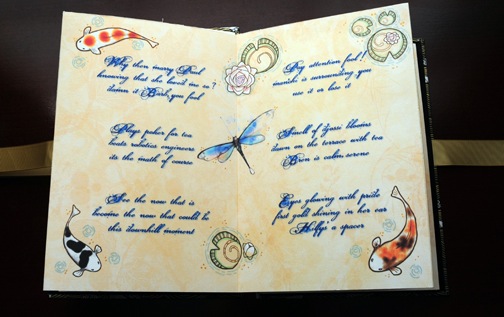 Why then marry Paul
knowing that she loved me so?
damn it Barb, you fool
Plays poker for tea
beats robotics engineers
its the math of course
See the now that is
become the now that could be
this downhill moment
Pay attention fool!
is surrounding you
use it or lose it
Smell of blooms
dawn on the terrace with tea
Bren is calm serene
Eyes glowing with pride
first gold shining in her ear
a spacer